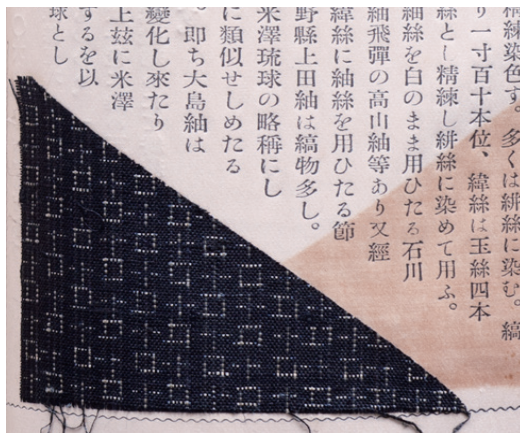 精練染色す。多くは絣絲に染む。縞
り一寸百十本位、緯絲は玉絲四本
絲とし精練し絣絲に染めて用ふ。
紬絲を白のまま用ひたる石川
紬飛彈の高山紬等あり又經
緯絲に紬絲を用ひたる節
野縣上田紬は縞物多し。
米澤琉球の略稱にし
に類似せしめたる
。即ち大島紬は
變化し來たり
上玆に米澤
するを以
球とし